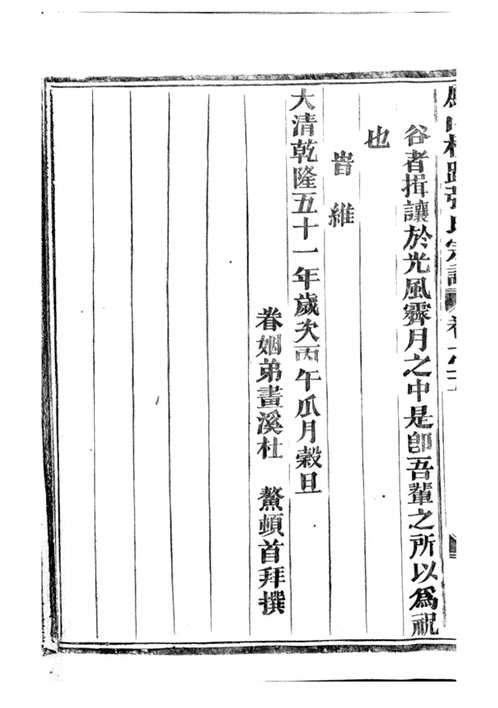 張氏宗譜
谷者揖讓於光風霽月之中是卽吾輩之所以為祝
也
旹維
大清乾隆五十一年歲次丙午瓜月穀旦
眷姻弟畫溪杜 鰲頓首拜撰